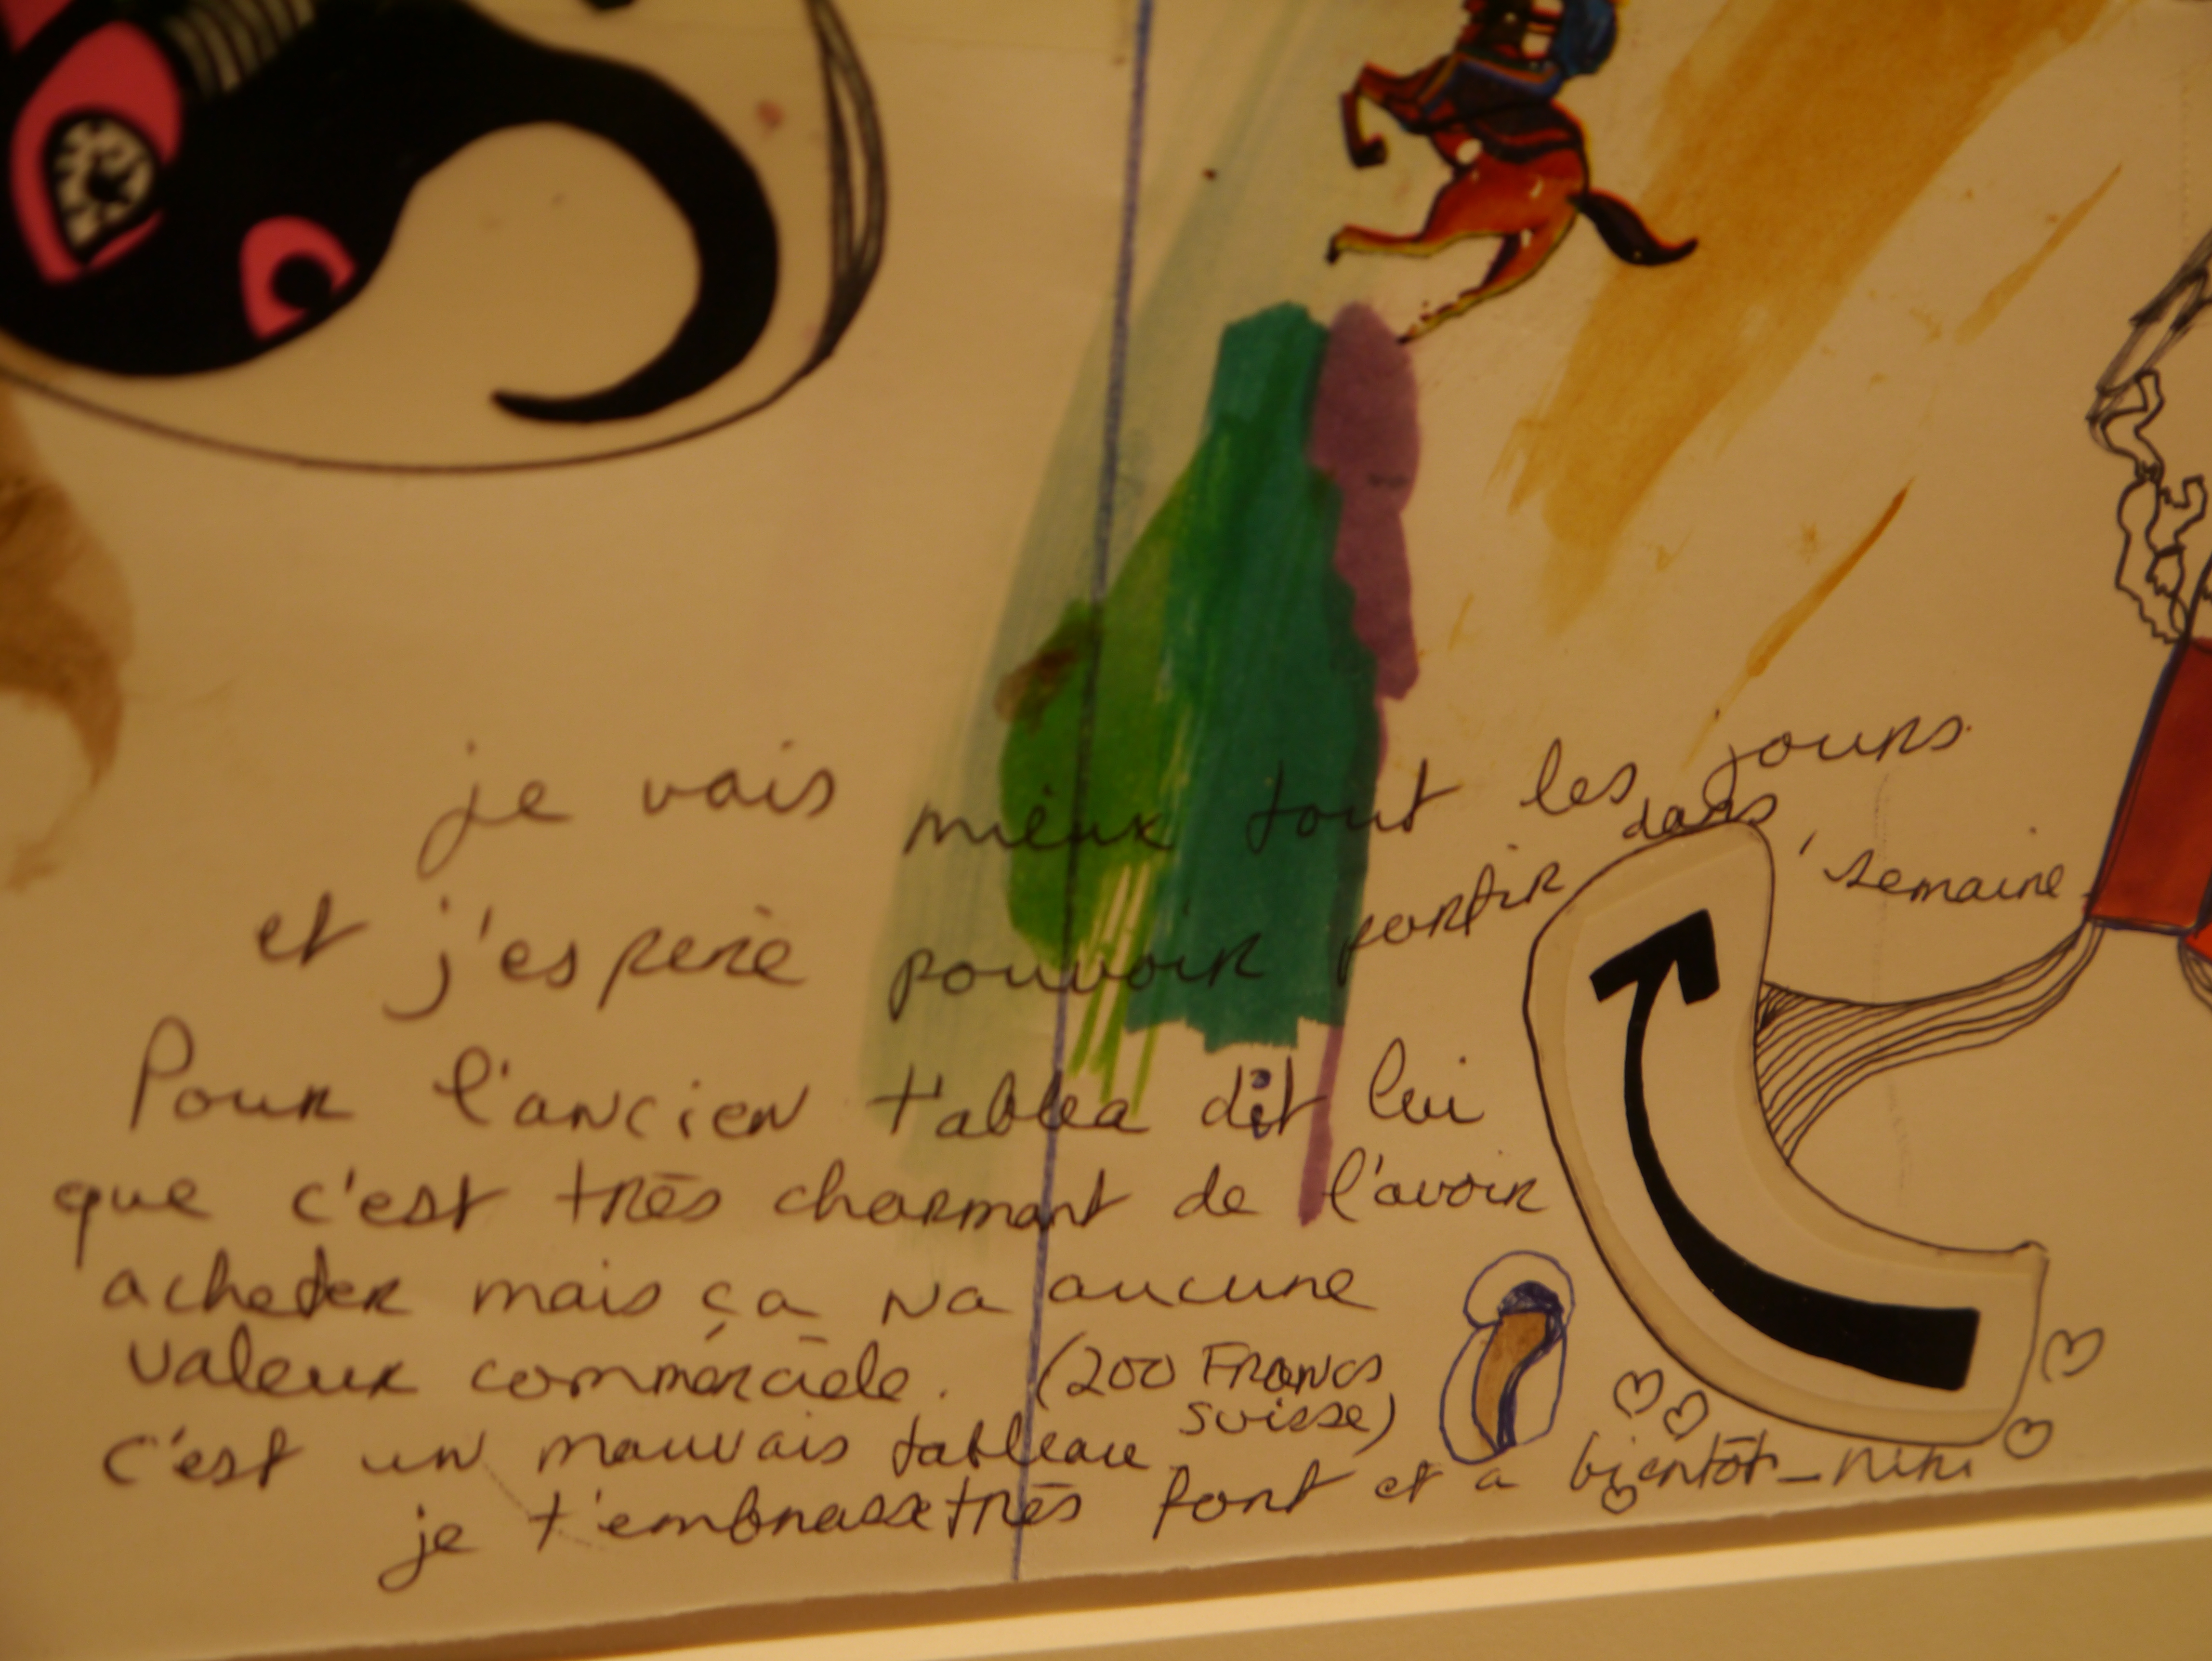 je vais mieux tout les jours
et j'espère pouvoir partir dans 1 semaine
Pour l'ancien tablea dit lui
que c'est très charmant de l'avoir
acheter mais ça na aucune
valeur commerciele. (200 Francs
suisse)
c'est un mauvais tableau
je t'embrasse très fort et a bientôt - Niki